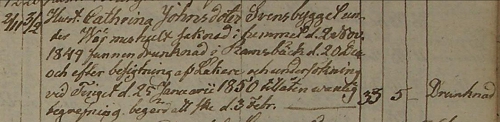 2/11 3/2 Hust. Cathrina Johnsdoter Svensbygget un-
der Wärmeshult saknad i hemmet d. 2 Nov.
1849 funnen drunknad i Ramsbäck d. 20 Dec.
och efter besigtning af Läkare och undersökning
vid Tinget d. 25 Januarii 1850 tillåten wanlig
begrafning begärd att ske d. 3 Febr. 33 5 — Drunknad